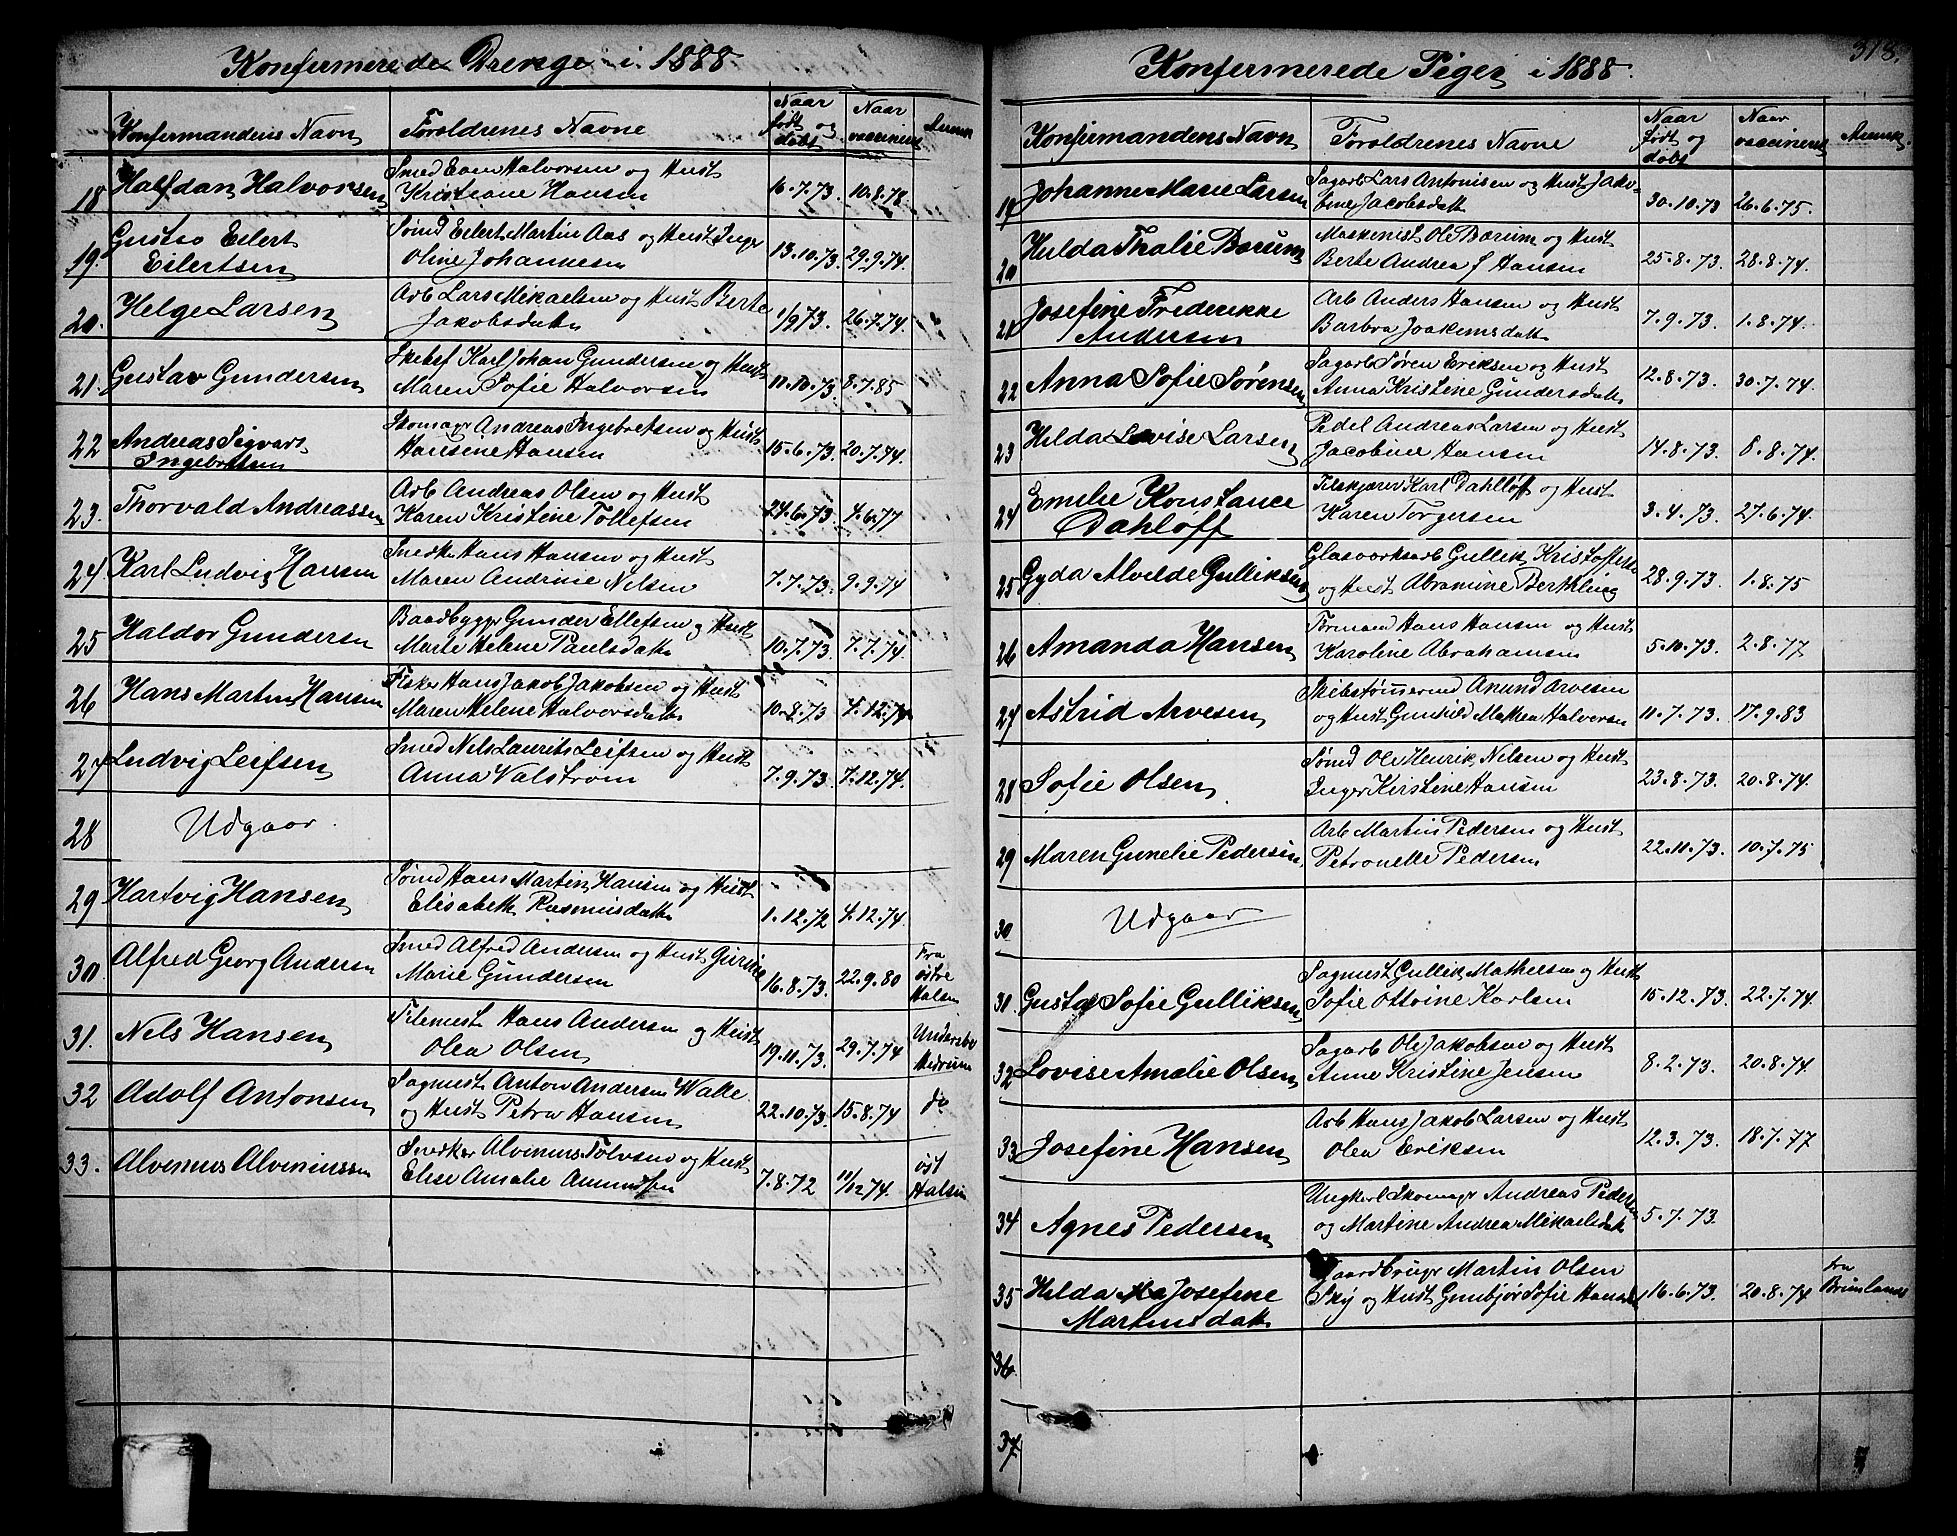 Konfermerede Drenge i 1888
Konfermandens Navn
Foroldrenes Navne
Naar født og døbt
Naar vaccineret
Anmk
18 Halfdan Halvorsen
Smed Halvorsen og Hust
Kristiane Hansen
16.7.73. 10.8.78
19. Gustav Eilert
Eilertsen
Sømd Eilert Martin Aas og Hust Inger
Oline Johannesen
13.10.73. 29.9.74.
20. Helge Larsen
Arb Lars Mikaelsen og Hust Berte
Jakobsdatt
1/9 73. 26.7.74.
21. Gustav Gundersen
Karl Johan Gundersen og Hust
Maren Sofie Halvorsen
11.10.73. 8.7.85
22 Andreas Sigvart
Ingebretsen
Skomagr Andreas Ingebretsen og Hust
Hansine Hansen
15.6.73. 20.7.74.
23. Thorvald Andreassen
Arb Andreas Olsen og Hust
Karen Kristine Tollefsen
24.6.73. 4.6.77
24 Karl Ludvig Hansen
Snedk Hans Hansen og Hust
Maren Andrine Nilsen
7.7.73. 9.9.74
25 Haldor Gundersen
Baadbyggr Gunder Ellefsen og Hust
Marte Helene Paulsdatt
10.7.73. 7.7.74.
26 Hans Martin Hansen
Fisker Hans Jakob Jakobsen og Hust
Maren Helene Halvorsdatt
10.8.73 4.12.74
27 Ludvig Leifsen
Smed Nels Laurits Leifsen og Hust
Anna Valstrom
7.9.73. 7.12.74.
28 Udgaar.
29 Hartvig Hansen
Sømd Hans Martin Hansen og Hust
Elisabeth Rasmusdatt
1.12.72 4.12.74
30 Alfred Georg Andersen
Smed Alfred Andersen og Hust Gurine
Marie Gundersen
16.8.73. 22.9.80
Fra
østre
Halsen
31. Nels Hansen
Filemest Hans Andersen og Hust
Olea Olsen
19.11.73. 29.7.74
Undersbo
Hedrum
32 Adolf Antonsen
Sagmest Anton Andersen Walle
og Hust Petra Hansen
22.10.73. 15.8.74
do
33. Alvinius Alviniussen
Snedker Alvinius Tolvsen og Hust
Elise Amalie Amundsen
7.8.72 11/12 74.
øst
Halsen
Konfermerede Piger i 1888.
318.
Konfirmandens Navn
Foroldrenes Navne
Naar født og døbt
Naar vaccineret
Anmk.
19 Johanne Marie Larsen
Sagarb Lars Antonisen og Hust Jako-
bine Jacobsdatt
30.10.73 26.6.75.
20 Hilda Thalie Borum
Maskenist Ole Borum og Hust
Berte Andrea f Hansen
25.8.73. 28.8.74.
21 Josefine Frederikke
Andersen
Arb Anders Hansen og Hust
Barbra Joakimsdatt
7.9.73. 1.8.74.
22 Anna Sofie Sørensen
Sagarb Søren Eriksen og Hust
Anna Kristine Gundersdatt
12.8.73. 30.7.74.
23 Hilda Lovise Larsen
Pedel Andreas Larsen og Hust
Jacobine Hansen
14.8.73. 8.8.74.
24 Emilie Konstance
Dahløff
Filskjærer Karl Dahlløff og Hust
Karen Torgersen
3.4.73. 27.6.74.
25 Gyda Alvilde Gulliksen
Glasværksarb Gullik Kristoffersen
og Hust Abramine Berthling
28.9.73. 1.8.75
26 Amanda Hansen
Formand Hans Hansen og Hust
Karoline Abrahamsen
5.10.73. 2.8.77
27 Astrid Arvesen
Skibstømmermd Anund Arvesen
og Hust Gunhild Mathea Halvorsen
11.7.73. 17.9.83
28 Sofie Olsen
Sømd Ole Henrik Nilsen og Hust
Inger Kirstine Hansen
23.8.73. 20.8.74.
29 Maren Gunelie Pedersen
Arb Martin Pedersen og Hust
Petronelle Pedersen
22.11.73. 10.7.75
30 Udgaar
31. Gusta Sofie Gulliksen
Sagmest Gullik Mathesen og Hust
Sofie Ottine Karlsen
15.12.73. 22.7.74.
32 Lovise Amalie Olsen
Sagarb Ole Jakobsen og Hust
Anne Kristine Jensen
8.2.73. 20.8.74.
33 Josefine Hansen
Arb Hans Jakob Larsen og Hust
Olea Eriksen
12.3.73. 18.7.77
34 Agnes Pedersen
Ungkarl Skomagr Andreas Pedersen
og Martine Andrea Mikaelsdatt
5.7.73.
35 Hilda Josefine
Martinsdatt
Gaardbrugr Martin Olsen
Sky og Hust Gunbjør Sofie Hansdatt
16.6.73. 20.8.74
fra
Brunlanes
36.
37